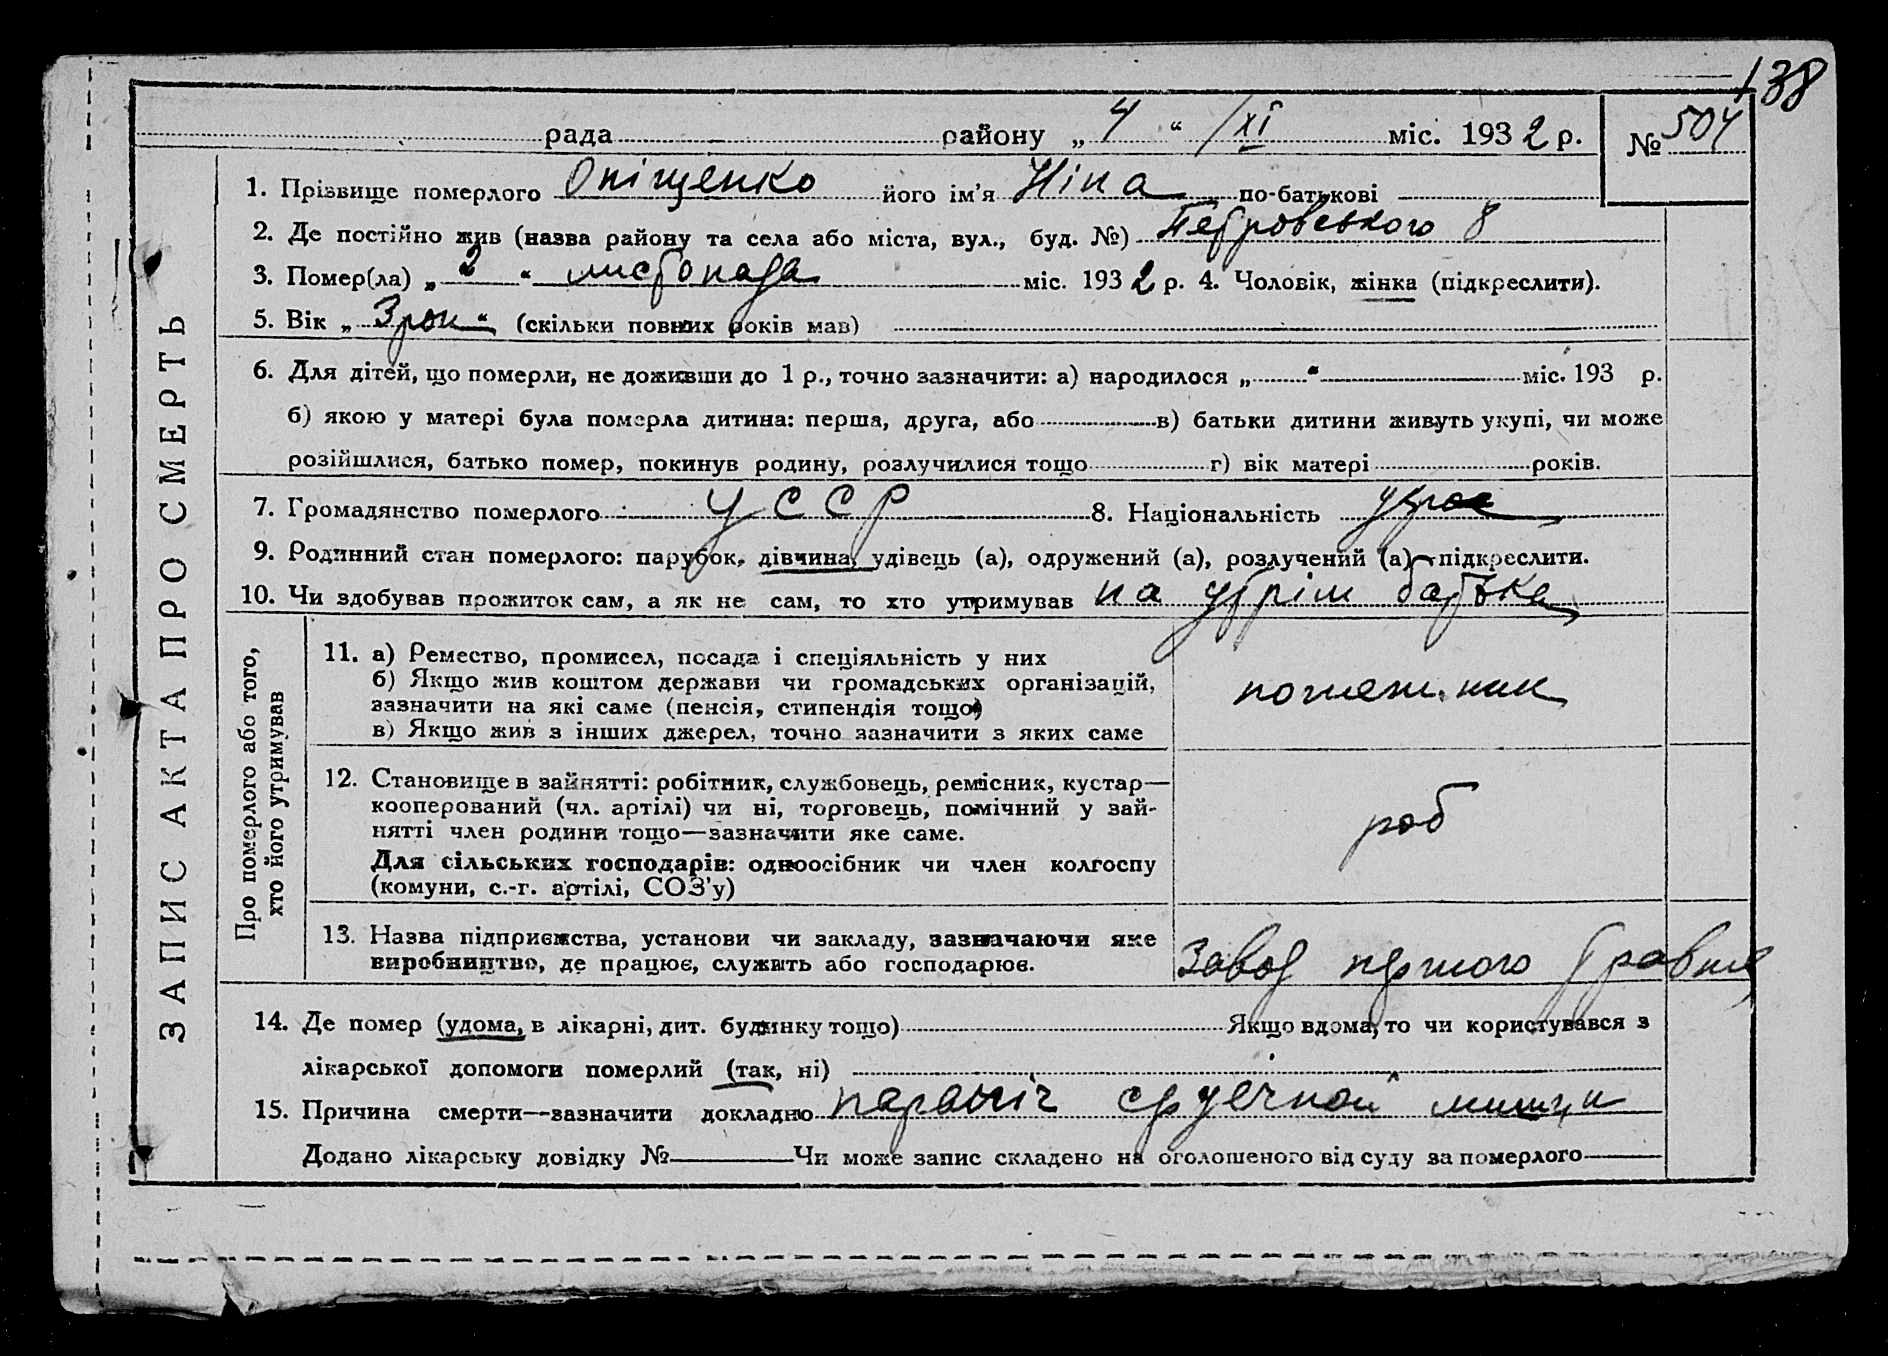 138
рада районy „ 4 “ /XI міс. 1932 р. № 504
1. Прізвище померлого Опіщенко його ім'я Ніна по-батькові
2. Де постійно жив (назва району та села або міста, вул., буд. №) Петровського 8
3. Помер(ла) „ 2 “ листопада міс. 1932 р. 4. Чоловік, жінка (підкреслити).
5. Вік „ 3 рок “ (скільки повних років мав)
6. Для дітей, що померли, не доживши до 1 р., точно зазначити: а) народилося „ “ міс. 193 р.
б) якою у матері була померла дитина: перша, друга, або в) батьки дитини живуть укупі, чи може
розійшлися, батько помер, покинув родину, розлучилися тощо г) вік матері років.
7. Громадянство померлого УССР 8. Національність
9. Родинний стан померлого: парубок, дівчина, удівець (а), одружений (а), розлучений (а)—підкреслити.
10. Чи здобував прожиток сам, а як не сам, то хто утримував на утрім батька
ЗАПИС АКТА ПРО СМЕРТЬ
Про померлого або того,
хто його утримував
11. а) Ремество, промисел, посада і спеціяльність у них
б) Якщо жив коштом держави чи громадських організацій,
зазначити на які саме (пенсія, стипендія тощо)
в) Якщо жив з інших джерел, точно зазначити з яких саме
12. Становище в зайнятті: робітник, службовець, ремісник, кустар—
кооперований (чл. артілі) чи ні, торговець, помічний у зай-
нятті член родини тощо—зазначити яке саме.
роб
Для сільських господарів: одноосібник чи член колгоспу
(комуни, с.-г. артілі, СОЗ'у)
13. Назва підприємства, установи чи закладу, зазначаючи яке
виробництво, де працює, служить або господарює.
завод першого травня
14. Де помер (удома, в лікарні, дит. будинку тощо) Якщо вдома, то чи користувався з
лікарської допомоги померлий (так, ні)
15. Причина смерти—зазначити докладно параліч сердечной мишци
Додано лікарську довідку № Чи може запис складено на оголошеного від суду за померлого